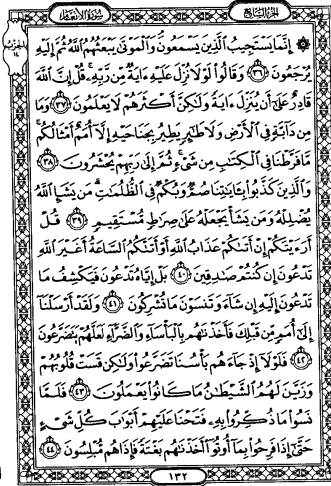 الجزء السابع
سورة الأنعام
الحزب
١٤
إِنَّمَا يَسْتَجِيبُ الَّذِينَ يَسْمَعُونَ وَالْمَوْتَى يَبْعَثُهُمُ اللَّهُ ثُمَّ إِلَيْهِ
يُرْجَعُونَ ٣٦ وَقَالُوا لَوْلَا نُزِّلَ عَلَيْهِ ءَايَةٌ مِّن رَّبِّهِ قُلْ إِنَّ اللَّهَ
قَادِرٌ عَلَى أَن يُنَزِّلَ ءَايَةً وَلَكِنَّ أَكْثَرَهُمْ لَا يَعْلَمُونَ ٣٧ وَمَا
مِن دَآبَّةٍ فِي الْأَرْضِ وَلَا طَائِرٍ يَطِيرُ بِجَنَاحَيْهِ إِلَّا أُمَمٌ أَمْثَالُكُم
مَّا فَرَّطْنَا فِي الْكِتَبِ مِن شَيْءٍ ثُمَّ إِلَى رَبِّهِمْ يُحْشَرُونَ ٣٨
وَالَّذِينَ كَذَّبُوا بِـَايَتِنَا صُمٌّ وَبُكْمٌ فِي الظُّلُمَتِ مَن يَشَإِ اللَّهُ
يُضْلِلْهُ وَمَن يَشَأْ يَجْعَلْهُ عَلَى صِرَطٍ مُّسْتَقِيمٍ ٣٩ قُلْ
أَرَءَيْتَكُمْ إِنْ أَتَىكُمْ عَذَابُ اللَّهِ أَوْ أَتَتْكُمُ السَّاعَةُ أَغَيْرَ اللَّهِ
تَدْعُونَ إِن كُنتُمْ صَدِقِينَ ٤٠ بَلْ إِيَّاهُ تَدْعُونَ فَيَكْشِفُ مَا
تَدْعُونَ إِلَيْهِ إِن شَاءَ وَتَنسَوْنَ مَا تُشْرِكُونَ ٤١ وَلَقَدْ أَرْسَلْنَا
إِلَى أُمَمٍ مِّن قَبْلِكَ فَأَخَذْنَهُم بِالْبَأْسَاءِ وَالضَّرَّاءِ لَعَلَّهُمْ يَتَضَرَّعُونَ
٤٢ فَلَوْلَا إِذْ جَاءَهُم بَأْسُنَا تَضَرَّعُوا وَلَكِن قَسَتْ قُلُوبُهُمْ
وَزَيَّنَ لَهُمُ الشَّيْطَنُ مَا كَانُوا يَعْمَلُونَ ٤٣ فَلَمَّا
نَسُوا مَا ذُكِّرُوا بِهِ فَتَحْنَا عَلَيْهِمْ أَبْوَبَ كُلِّ شَيْءٍ
حَتَّى إِذَا فَرِحُوا بِمَا أُوتُوا أَخَذْنَهُم بَغْتَةً فَإِذَا هُم مُّبْلِسُونَ ٤٤
١٣٢